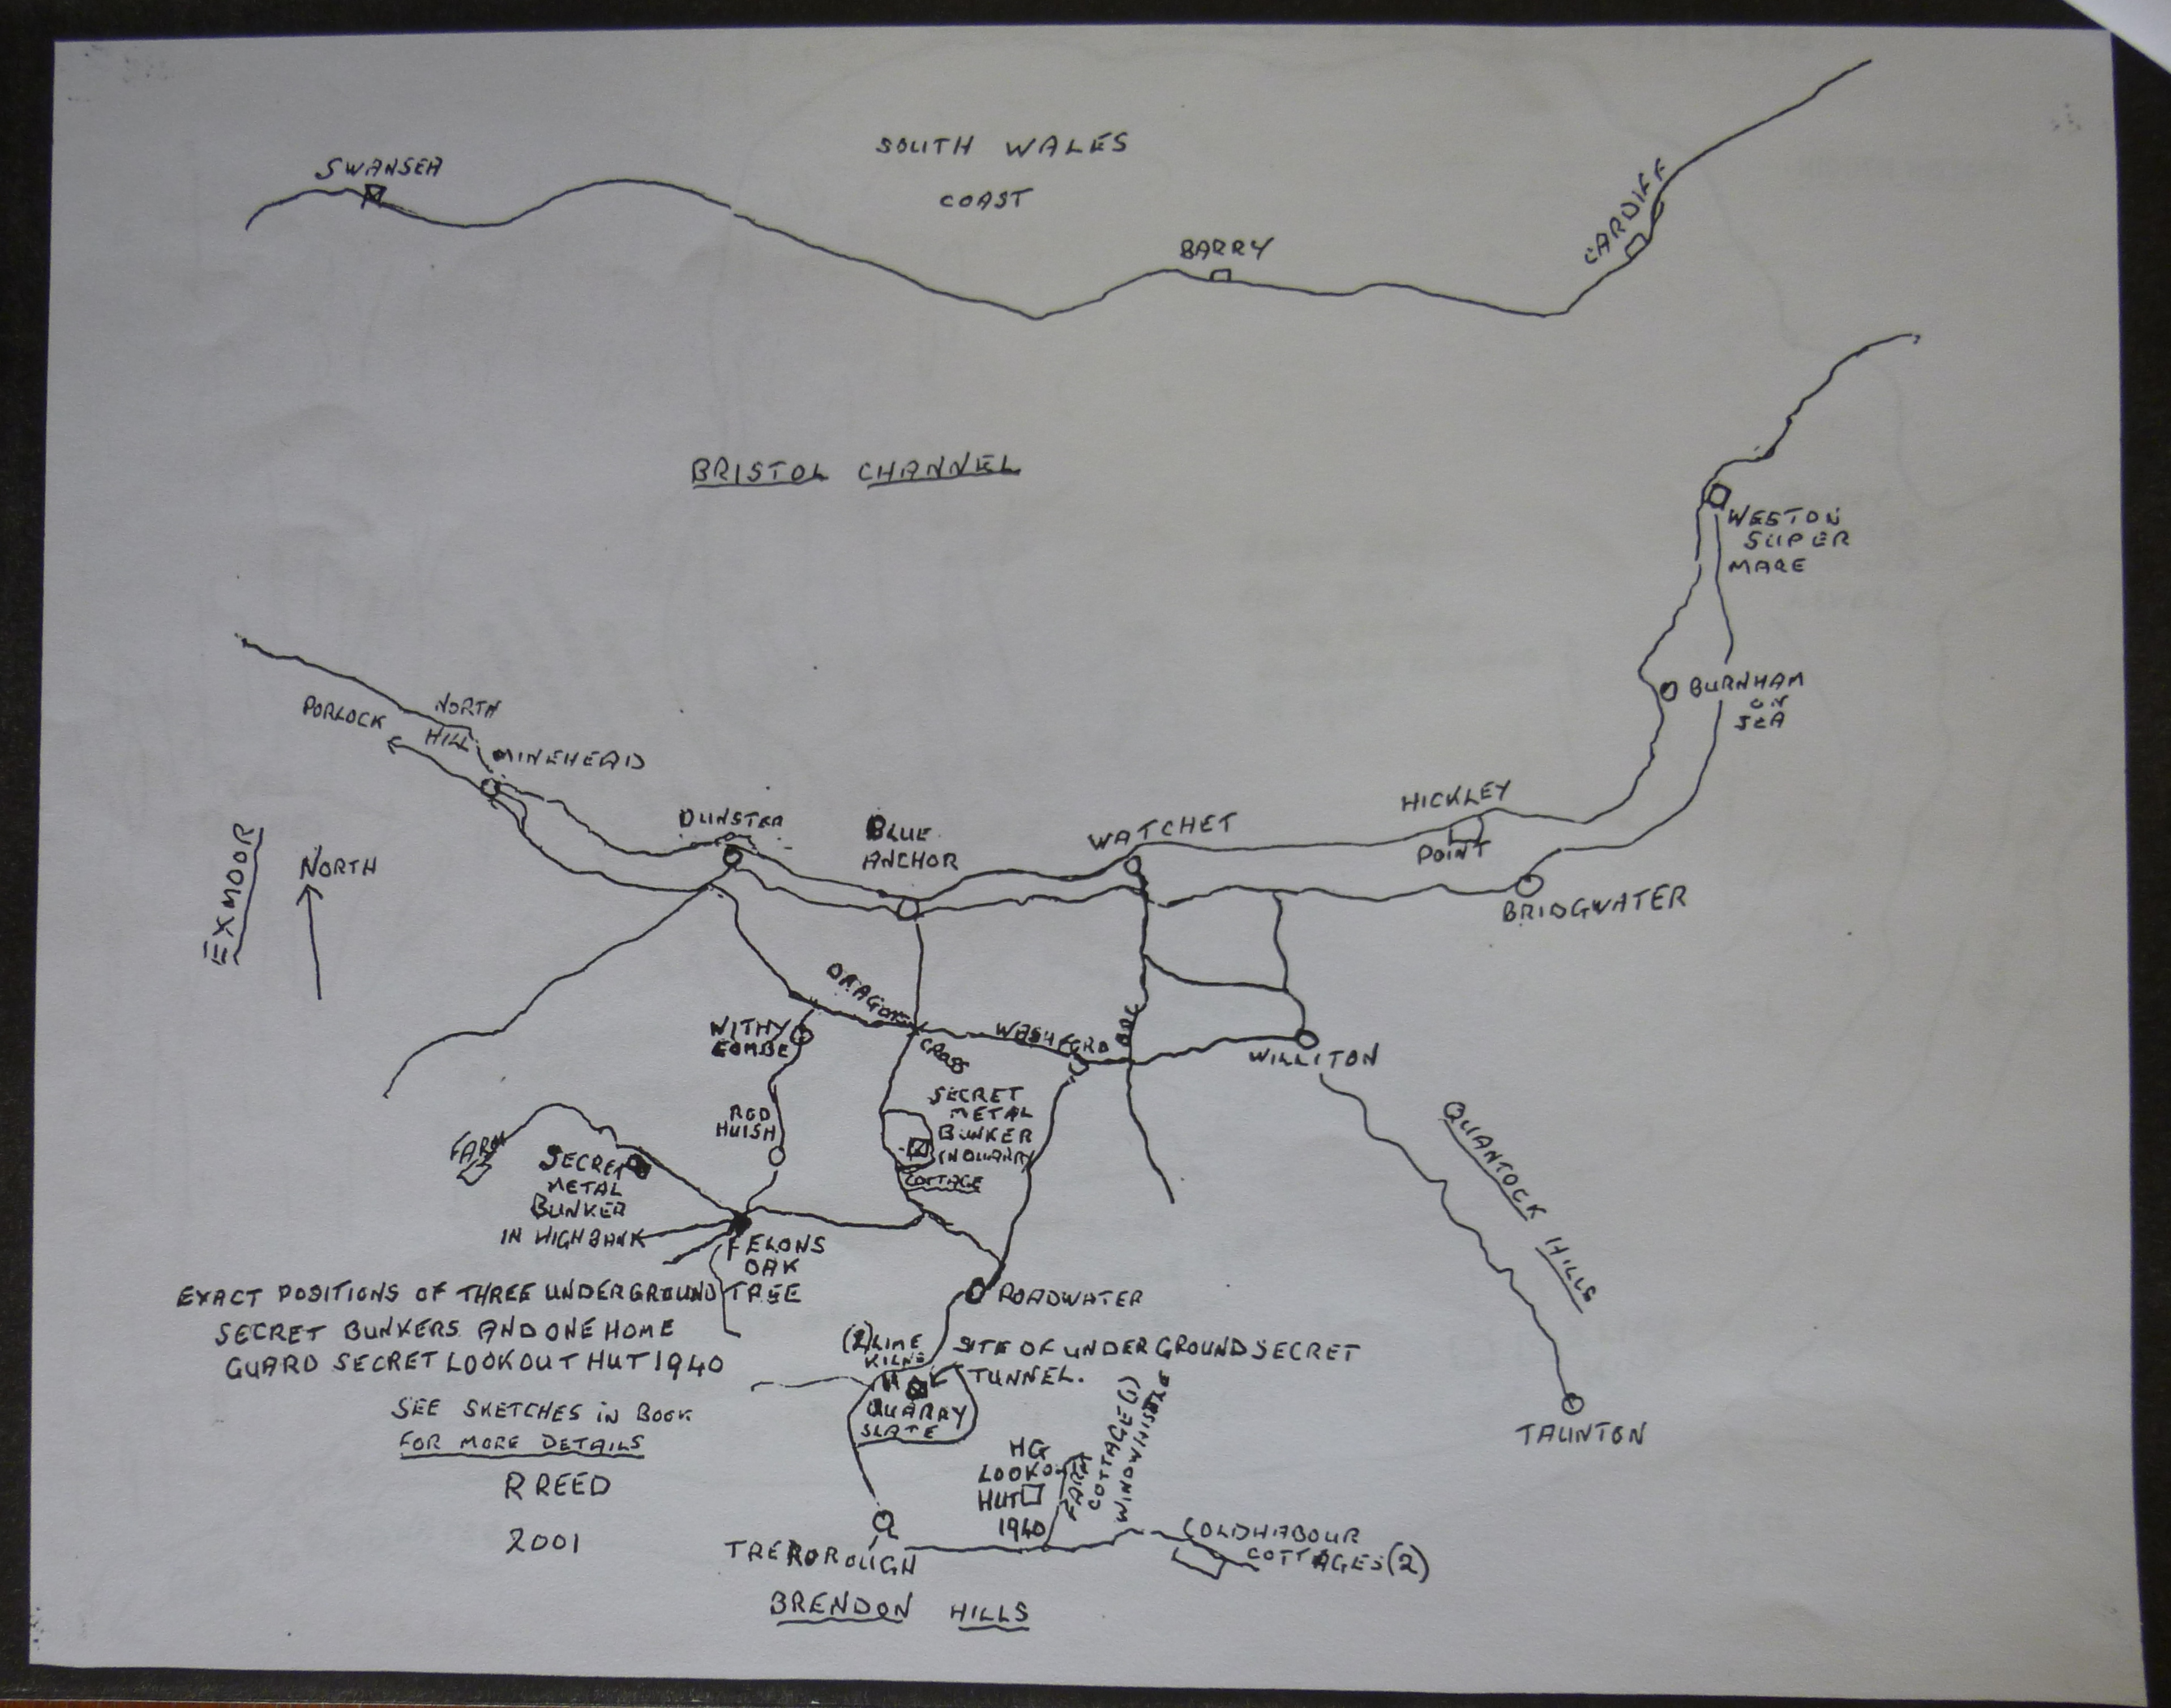 SWANSEA
SOUTH WALES
COAST
BARRY
CARDIFF
BRISTOL CHANNEL
WESTON
SUPER
MARE
BURNHAM
ON
SEA
PORLOCK
NORTH
HILL
MINEHEAD
DUNSTER
BLUE
ANCHOR
WATCHET
HICKLEY
POINT
BRIDGWATER
EXMOOR
NORTH
DRAGON
CROSS
WITHY
COMBE
WASHFORD
WILLITON
ROD
HUISH
SECRET
METAL
BUNKER
IN QUARRY
COTTAGE
FARM
SECRET
METAL
BUNKER
IN HIGH BANK
FELONS
OAK
TREE
QUANTOCK HILLS
EXACT POSITIONS OF THREE UNDERGROUND
SECRET BUNKERS AND ONE HOME
GUARD SECRET LOOKOUT HUT 1940
SEE SKETCHES IN BOOK
FOR MORE DETAILS
R REED
2001
ROADWATER
(2) LIME
KILNS
SITE OF UNDERGROUND SECRET
TUNNEL.
QUARRY
SLATE
HG
LOOKO
HUT
1940
FARM
COTTAGE (1)
TAUNTON
TREBOROUGH
COLDHABOUR
COTTAGES (2)
BRENDON HILLS